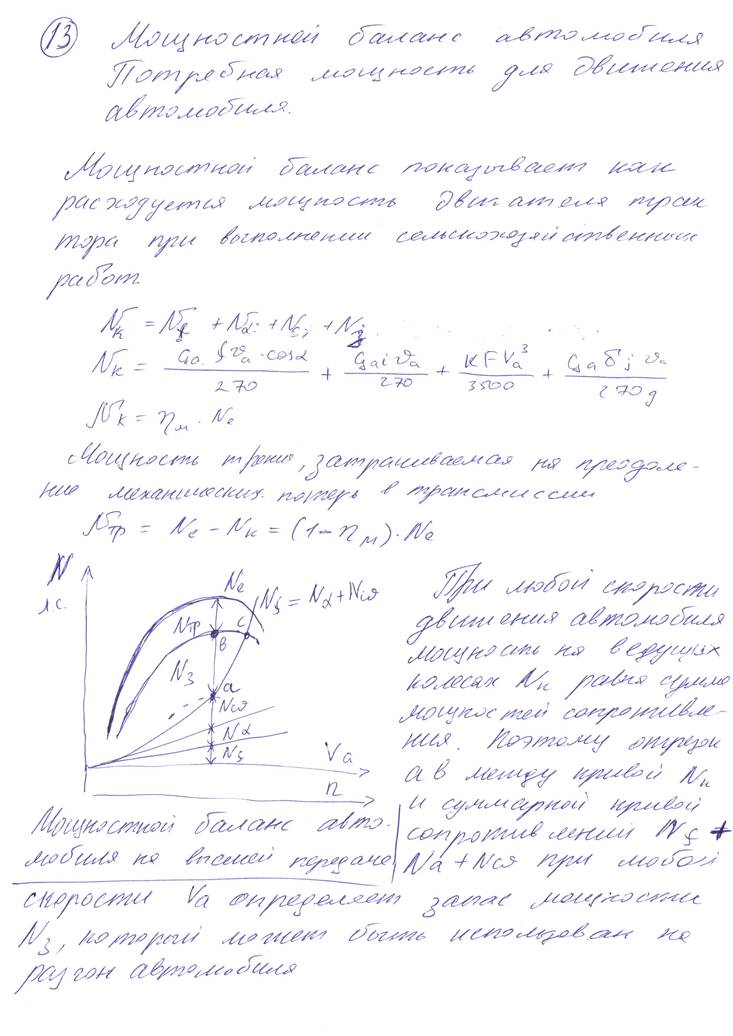 13 Мощностной баланс автомобиля
Потребная мощность для движения
автомобиля.
Мощностной баланс показывает как
расходуется мощность двигателя трак
тора при выполнении сельскохозяйственных
работ
Nк = Nf + Nαi + Nω + Nj
Nк = Ga f Va · cosα / 270 + Ga i Va / 270 + KFVa³ / 3500 + Ga δ j Va / 270g
Nк = ηм · Ne
Мощность трения, затрачиваемая на преодоле-
ние механических потерь в трансмиссии
Nтр = Ne - Nк = (1-ηм)·Ne
N
л.с.
Ne
Nтр
в
c
Nз
a
Nω
Nα
Va
n
Мощностной баланс авто-
мобиля на высшей передаче
При любой скорости
движения автомобиля
мощность на ведущих
колесах Nк равна сумме
мощностей сопротивле-
ния. Поэтому отрезок
ав между кривой Nк
и суммарной кривой
сопротивлений Nf +
Nα + Nω при любой
скорости Va определяет запас мощности
Nз, который может быть использован на
разгон автомобиля